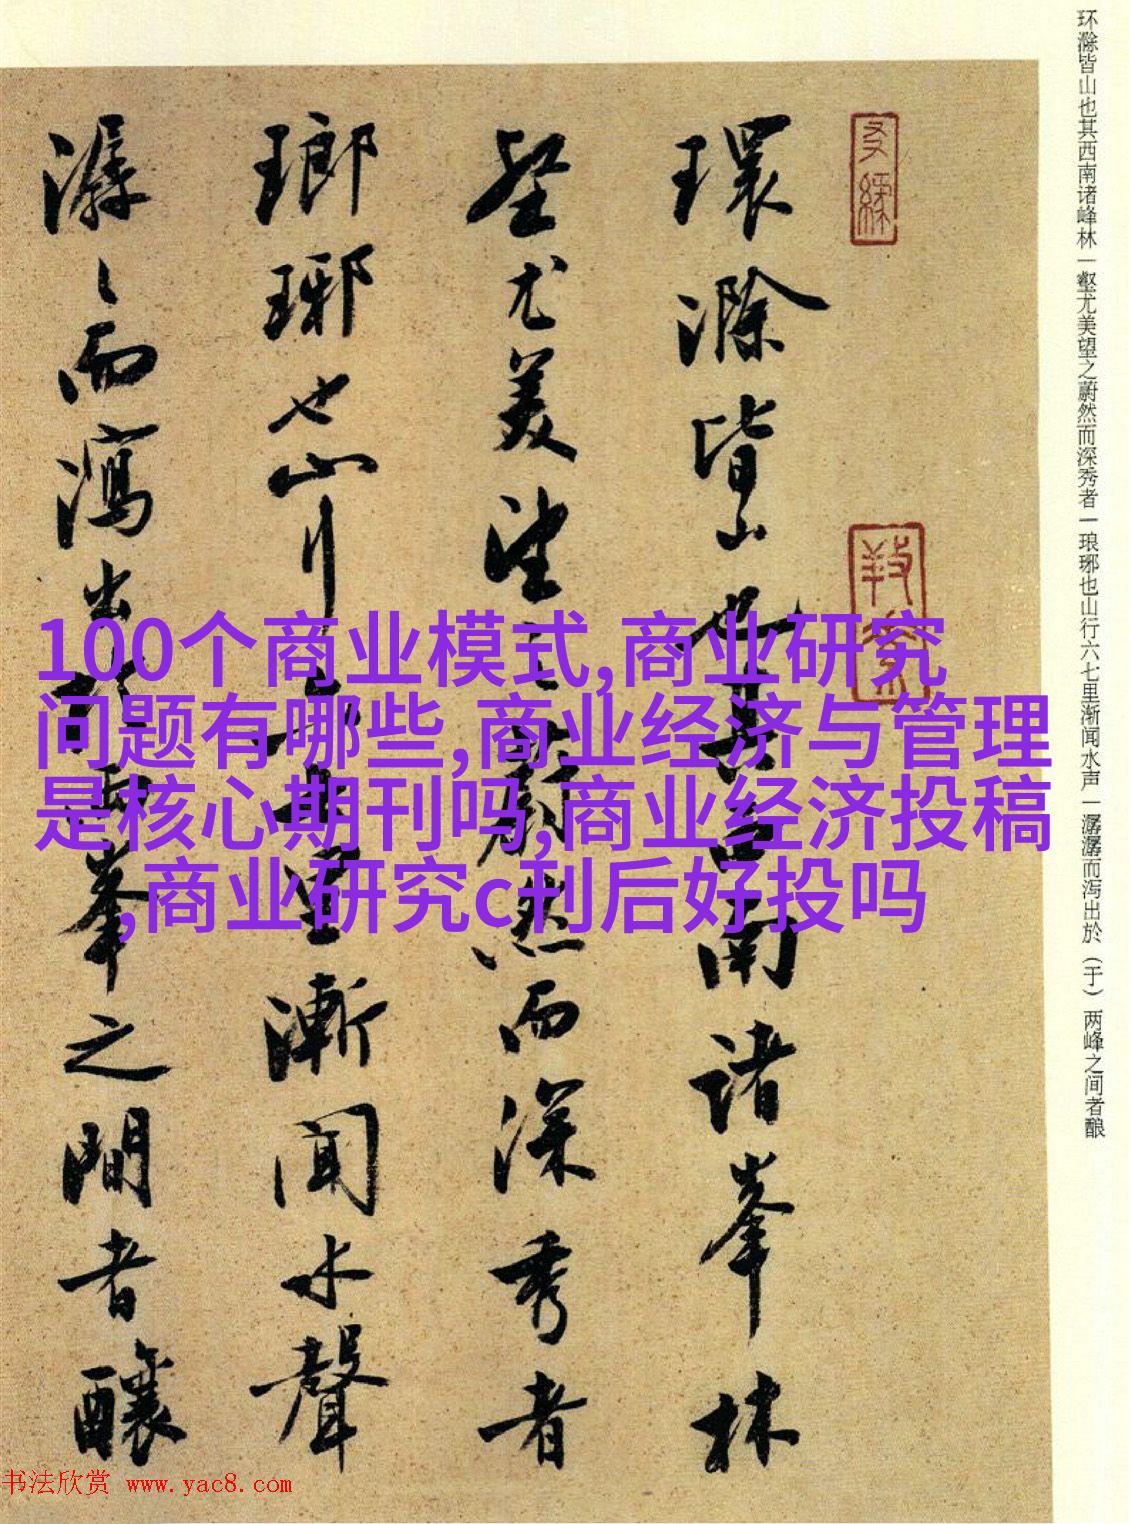 环滁皆山也其西南诸峰林一壑尤美望之蔚然而深秀者一琅琊也山行六七里渐闻水声一潺潺而泻出於（于）两峰之间者酿
環滁皆山也其西南諸峯林
壑尤美望之蔚然而深秀者
瑯琊也山行六七里漸聞水聲
潺〻而瀉出於兩峯之間者釀
100个商业模式,商业研究
问题有哪些,商业经济与管理
是核心期刊吗,商业经济投稿
,商业研究c刊后好投吗
书法欣赏 www.yac8.com